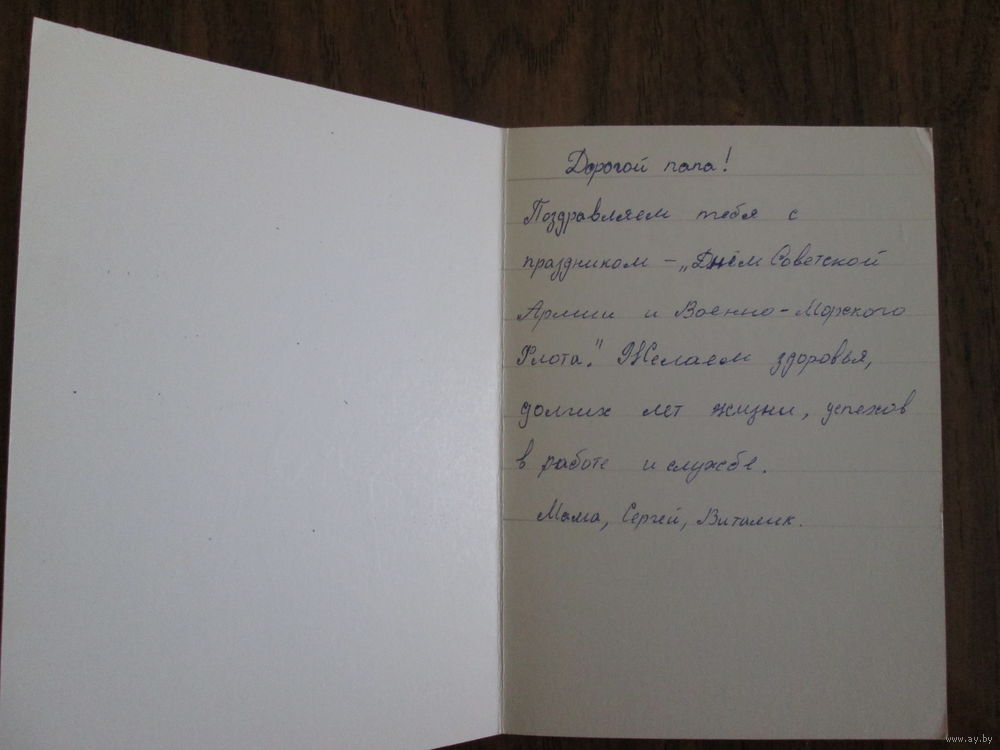 Дорогой папа!
Поздравляем тебя с
праздником – „Днём Советской
Армии и Военно-Морского
Флота". Желаем здоровья,
долгих лет жизни, успехов
в работе и службе.
Мама, Сергей, Виталик.
www.ay.by